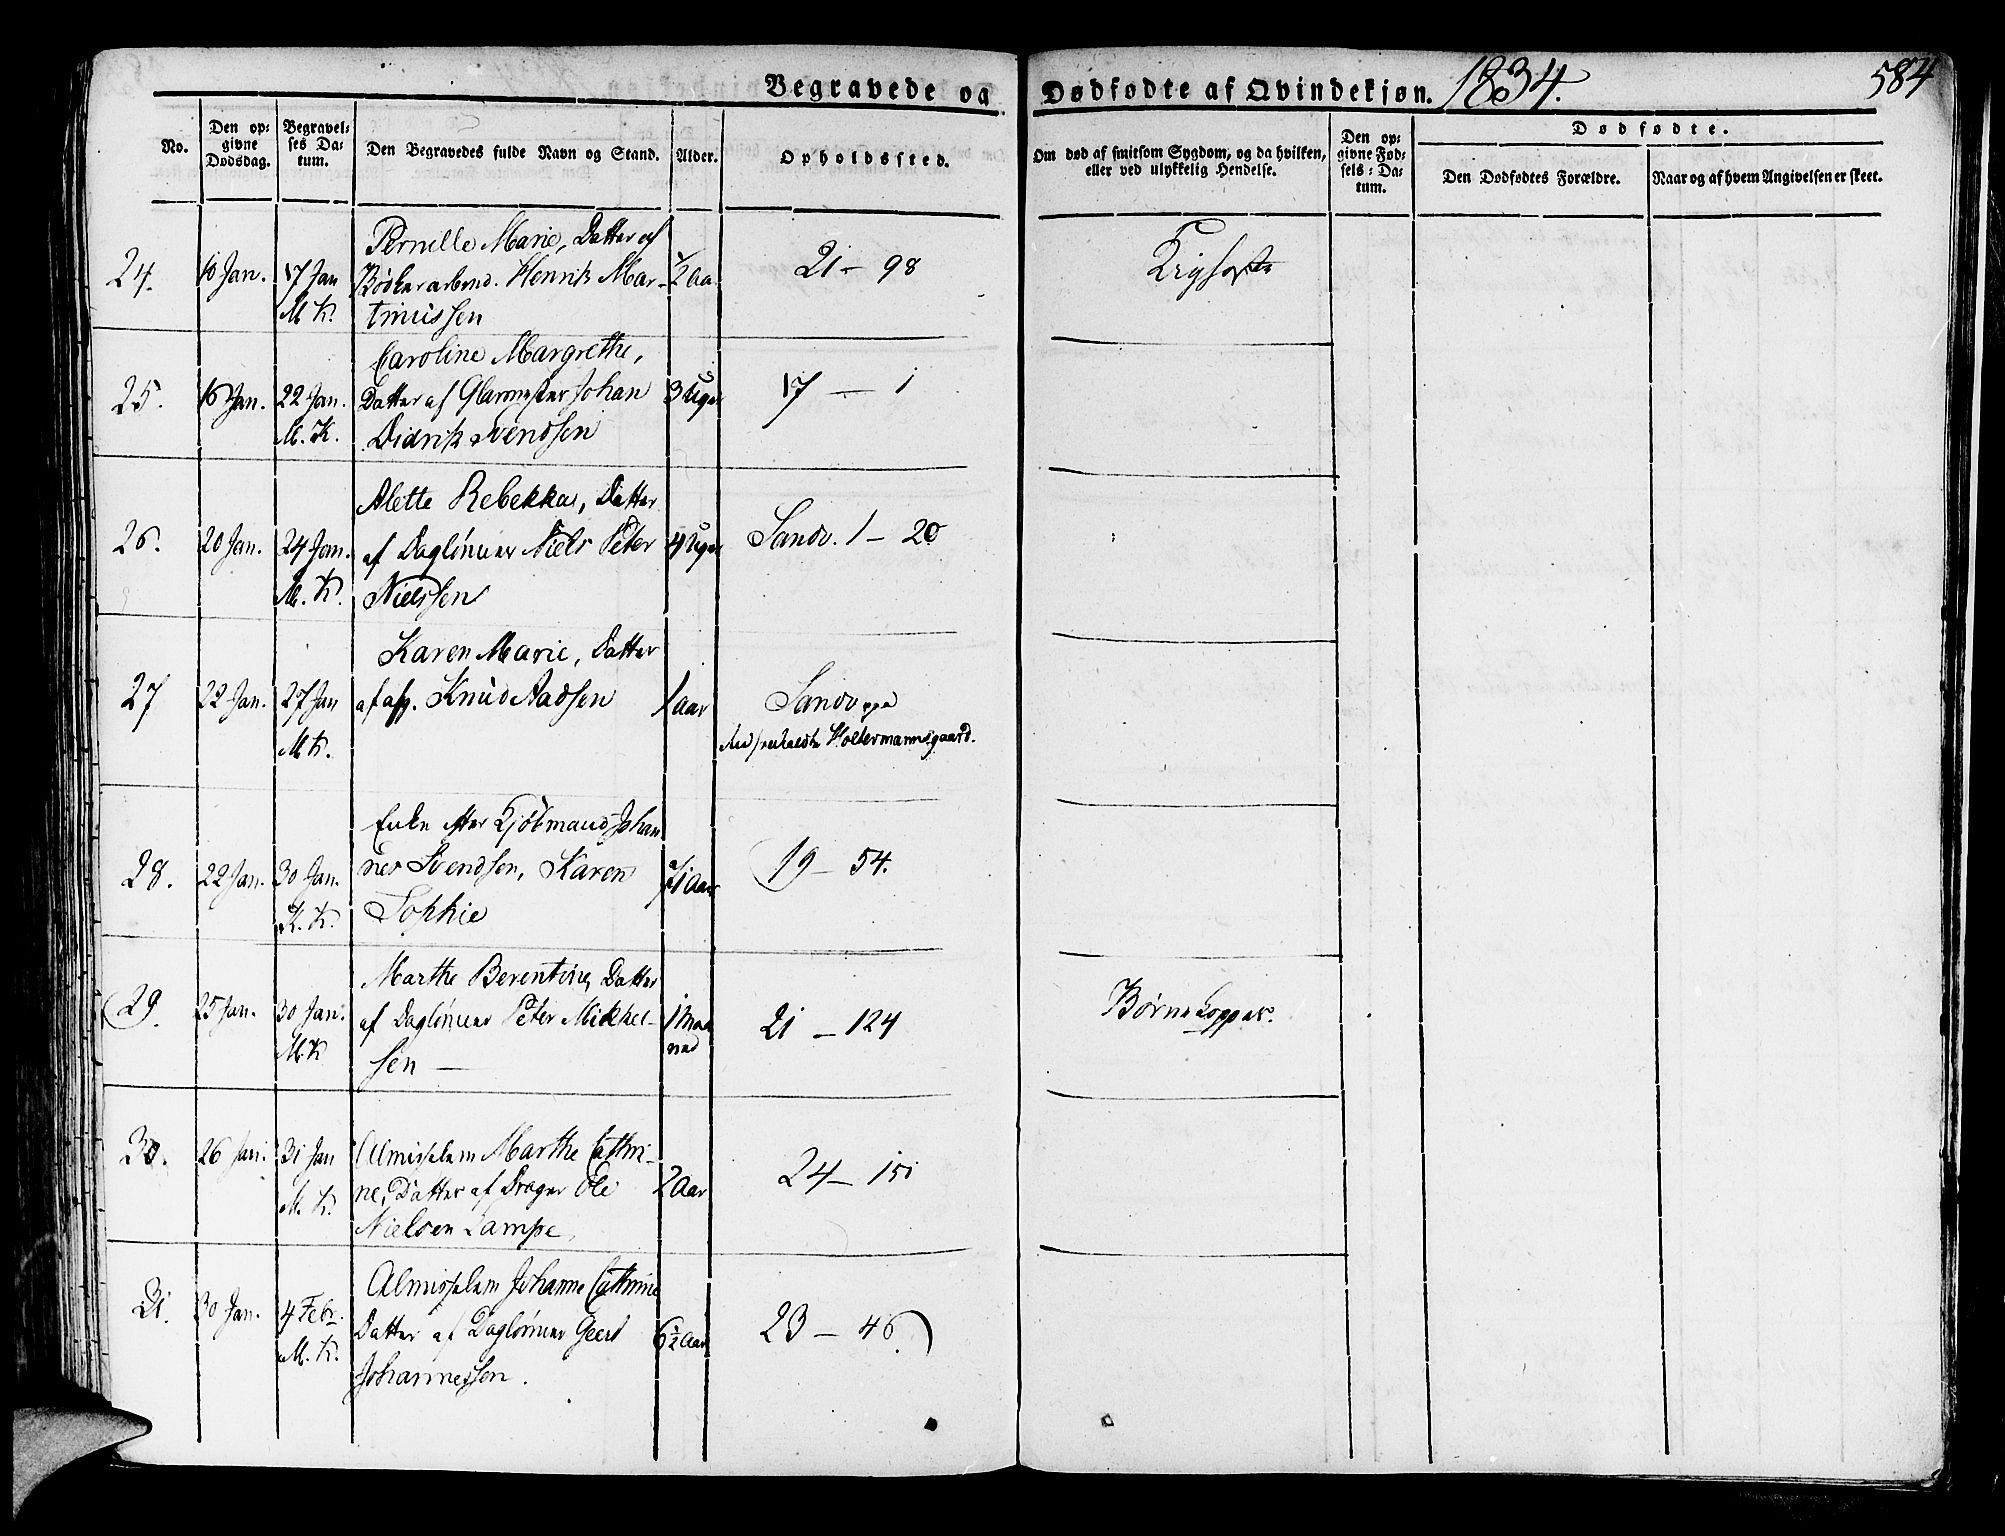 Begravede og Dødfødte af Qvindekjøn. 1834. 584
No.
Den opgivne Dødsdag.
Begravelses Datum.
Den Begravedes fulde Navn og Stand.
Alder.
Opholdssted.
Om død af smitsom Sygdom, og da hvilken, eller ved ulykkelig Hendelse.
Den opgivne Fødsels-Datum.
Dødfødte.
Den Dødfødtes Forældre.
Naar og af hvem Angivelsen er skeet.
Pernille Marie, Datter af
24. 10 Jan. 17 Jan Bødkerarbmd. Henrik Mar- 1/2 Aa 21 - 98
M. K. tinussen
Caroline Margrethe,
25. 16 Jan. 22 Jan. Datter af Glarmester Johan 3 Uger 17 - 1
M. K. Didrik Svendsen
Alette Rebekka, Datter
26. 20 Jan. 24 Jan. af Daglønner Niels Peter 4 Uger Sandv. 1 - 20
M. K. Nielssen
Karen Marie, Datter
27 22 Jan. 27 Jan af afg. Knud Aadsen 1 Aar Sandv
M K. Holtermannsgaard.
Enke efter Kjøbmand Johan
28. 22 Jan. 30 Jan. nes Svendsen, Karen 71 Aar 19 - 54.
K. K. Sophie
Marthe Berentine, Datter
29. 25 Jan. 30 Jan. af Daglønner Peter Mikkel- 1 Maa 21 - 124 Børnekopper.
M. K sen — ned
30. 26 Jan. 31 Jan Almisselem Marthe Cathri-
M. K. ne, Datter af Drager Ole 2 Aar 24 - 151
Nielsen Lampe,
Almisselem Johanne Cathrine
31. 30 Jan. 4 Febr. Datter af Daglønner Geert 6 1/2 Aar 23 - 46
M. K. Johannessen.